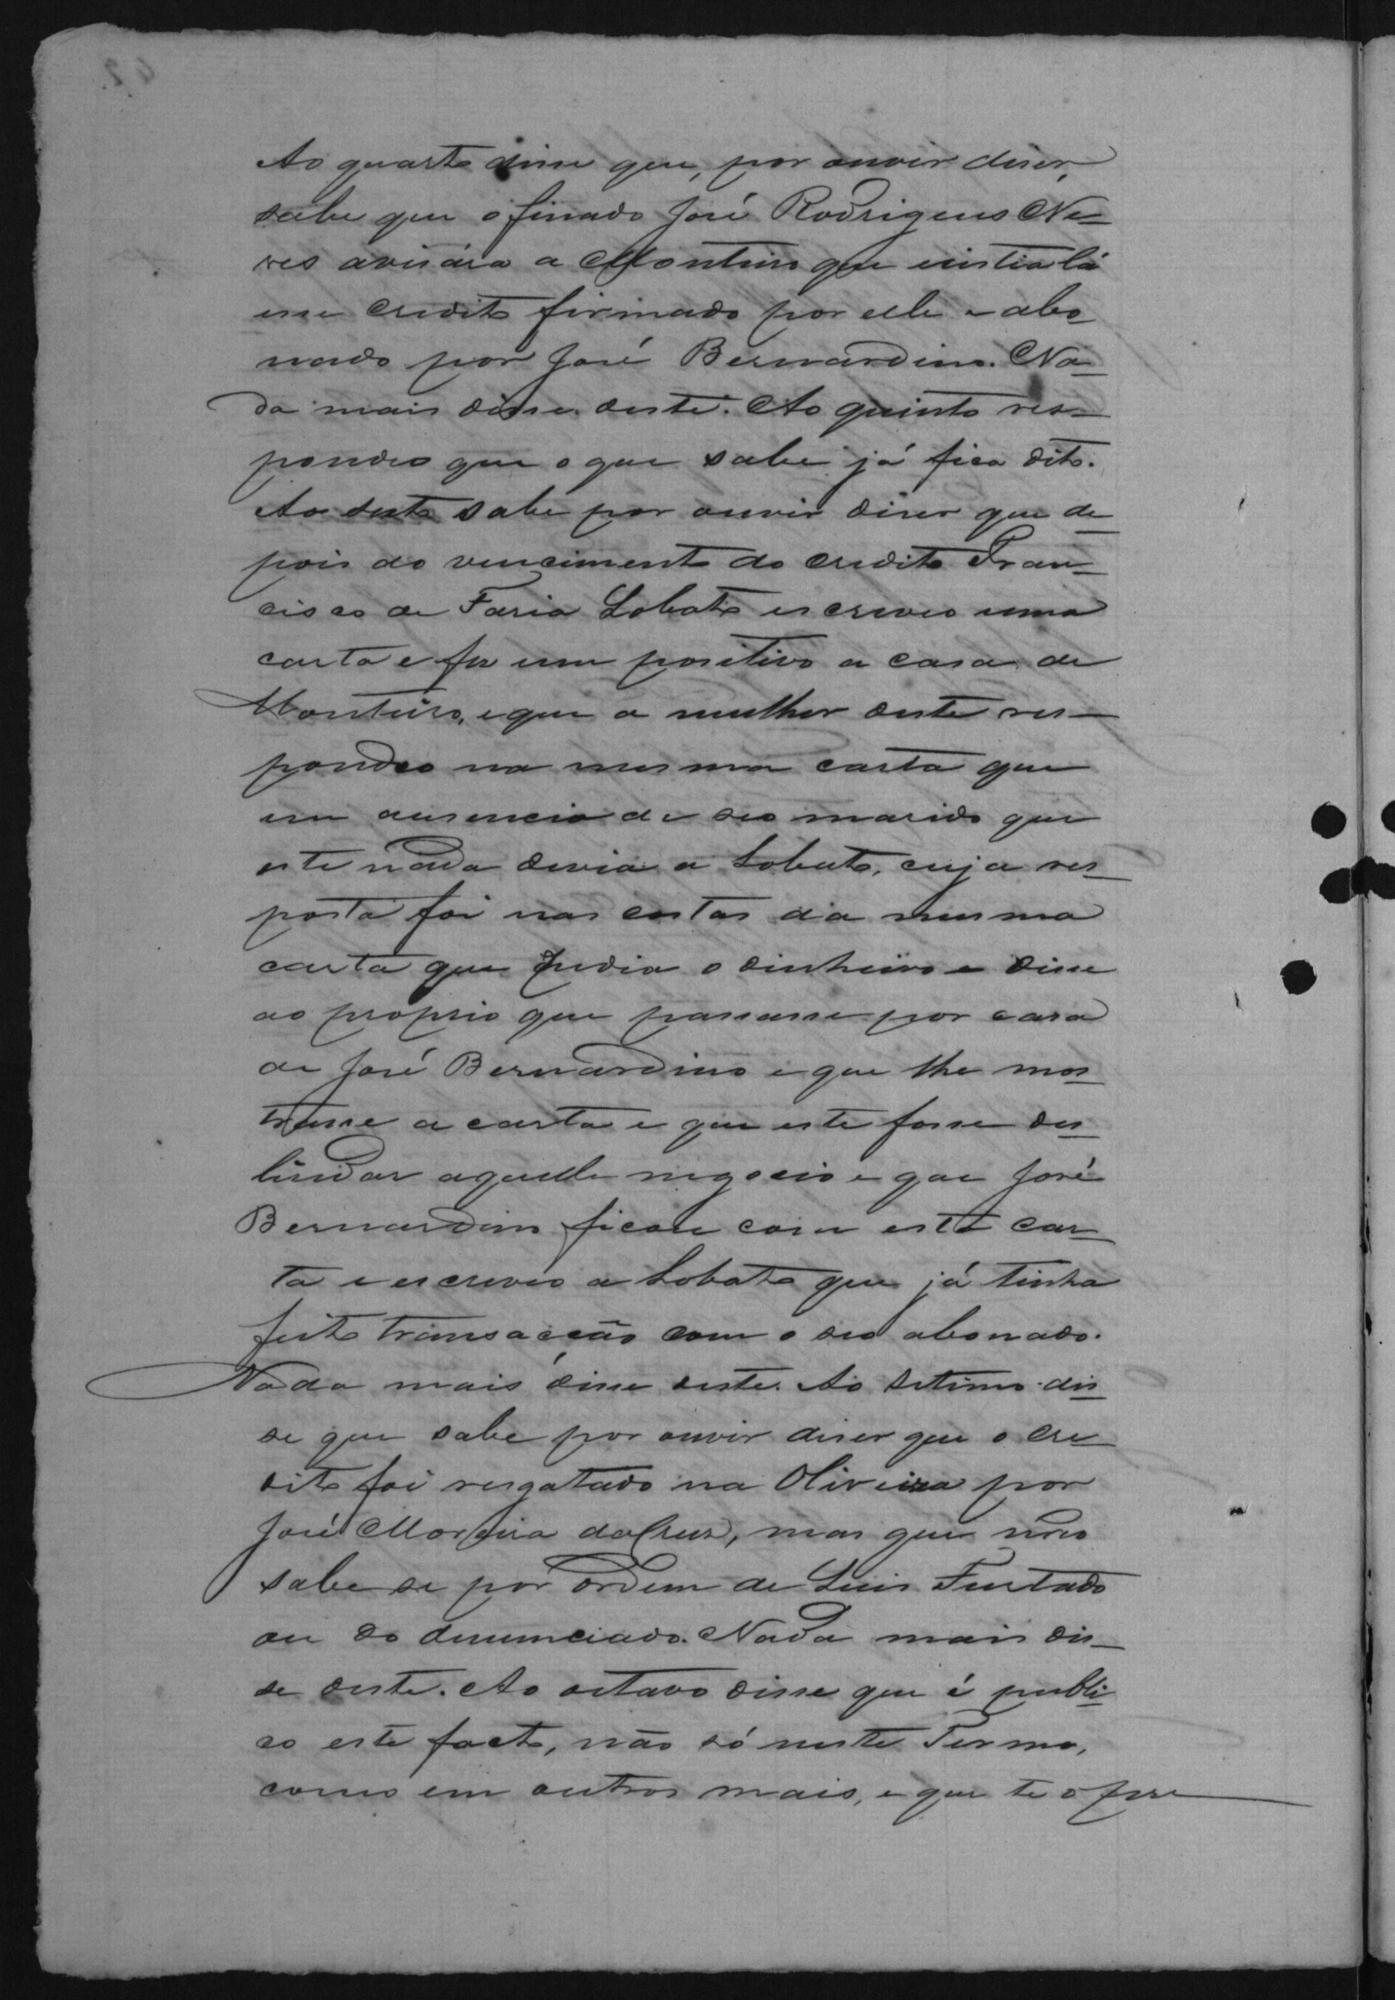 Ao quarto disse que, por ouvir diser,
sabe que o finado José Rodrigues Ne-
ves avisára a Monteiro que existia lá
esse credito firmado por elle e abo-
nado por José Bernardino. Na-
da mais disse deste. Ao quinto res-
pondeo que o que sabe já fica dito.
Ao sexto sabe por ouvir diser que de-
pois do vencimento do credito Fran-
cisco de Faria Lobato escreveo uma
carta e fes um positivo a casa de
Monteiro, e que a mulher deste res-
pondeo na mesma carta que
em ausencia de seo marido que
este nada devia a Lobato, cuja res-
posta foi nas costas da mesma
carta que pedia o dinheiro e disse
ao proprio que passasse por casa
de José Bernardino e que lhe mos-
trasse a carta e que este fosse des-
lindar aquelle negocio e que José
Bernardino ficou com esta car-
ta e escreveo a Lobato que já tinha
feito transacção com o seo abonado.
Nada mais disse deste. Ao setimo dis-
se que sabe por ouvir diser que o cre-
dito foi resgatado na Oliveira por
José Moreira da Crus, mas que não
sabe se por ordem de Luis Furtado
ou do denunciado. Nada mais dis-
se deste. Ao oitavo disse que é publi-
co este facto, não só neste Termo,
como em outros mais, e que te o pre